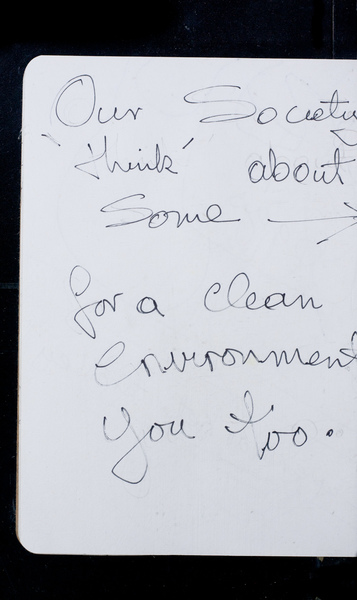 Our Society
'think' about
Some →
for a clean
environment
you too.